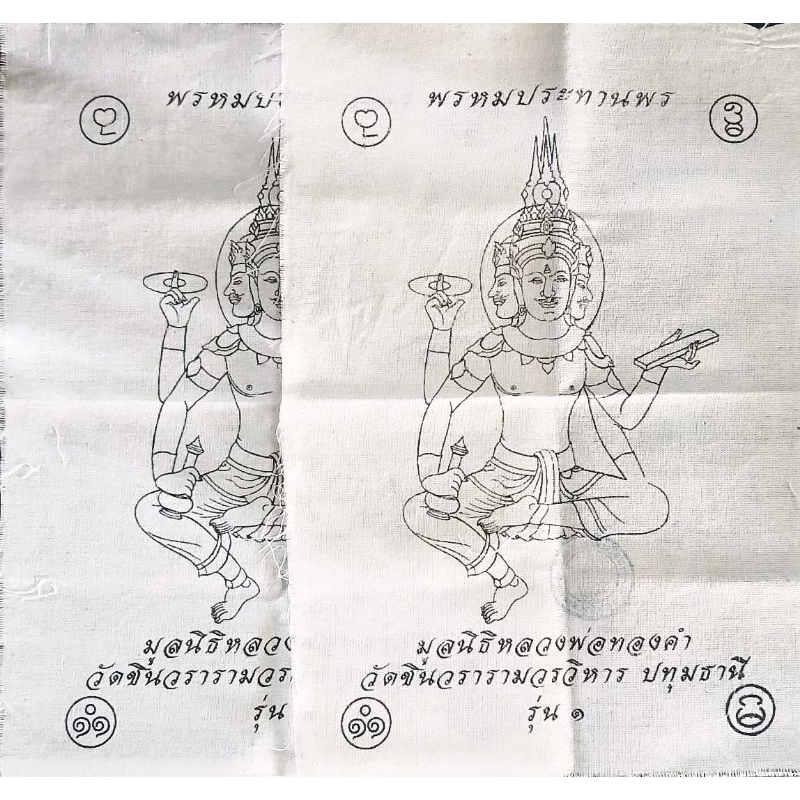 พรหมป
มูลนิธิหลวง
วัดชินวรารามวร
รุ่น
พรหมประทานพร
มูลนิธิหลวงพ่อทองคำ
วัดชินวรารามวรวิหาร ปทุมธานี
รุ่น ๑